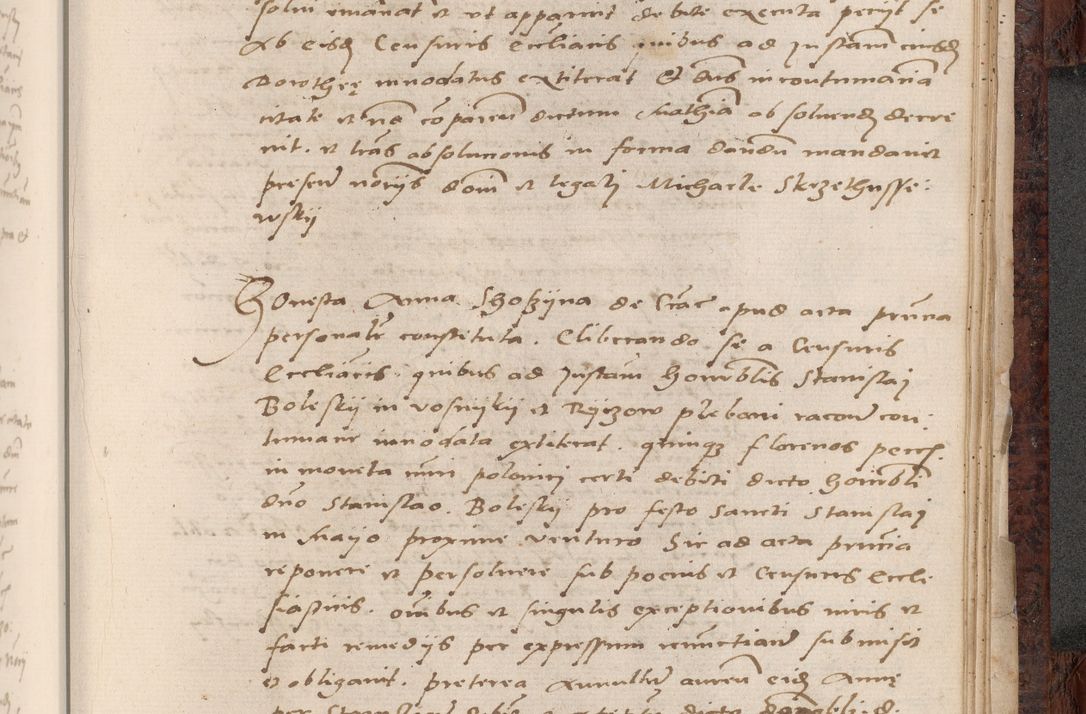 solui emanat et ut apparuit debite executa periit se
Ab eisd Censuris Ecclīaris quibus ad Instam eiusd
Dorotheę innodatus extiterat Et Dns in contumaciā
citatę et nō cōparen dictum Mathiā ab soluend decre
uit . et lrās absolucionis in forma dandū mandauit
presen noriis dom et legali Michaele Skrzethusse:
wskij
Honesta Anna Shoszijna de Crac apud acta prūcia
personalr constituta . Eliberando se a Censuris
Ecclīacis . quibus ad Instam honorblis Stanislaj
Boleskij in vosnykij et Ryczow plebani racone con:
tumacie innodata extiterat . quinqz florenos pecc.
in moneta nūri polonici certi debiti dicto honorbli
dno Stanislao . Boleskij pro festo Sancti Stanislaj
in Maijo proxime venturo Sic ad acta prūcia
reponere et persoluere sub poenis et Censuris Eccle
siasticis . omībus et singulis exceptionibus iuris et
facti remedijs per expressum renūctians submisit
et obligauit . preterea Annullum aureū eid Annę